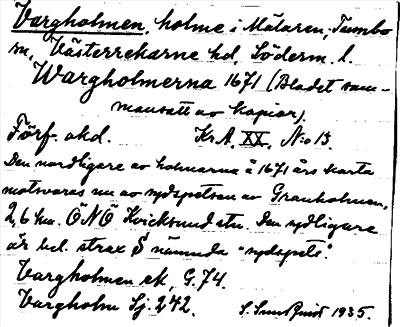 Vargholmen, holme i Mälaren, Tumbo
sn, Västerrekarne hd, Söderm. l.
Wargholmerna 1671 (Bladet sam-
mansatt av kopior).
Förf. okd. Kr.A. XX, N:o 13.
Den nordligare av holmarna å 1671 års karta
motsvaras nu av sydspetsen av Granholmen,
2,6 km. ÖNÖ Kvicksund stn. Den sydligare
är bel. strax S nämnda "sydspets".
Vargholmen ek, G. 74.
Vargholm Sj. 242. S. Sundquist 1935.